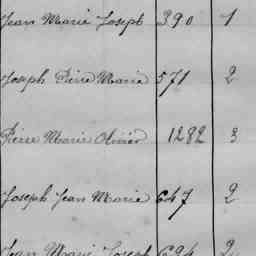 Jean Marie Joseph 390 1
Joseph Pierre Marie 571 2
Pierre Marie Olivier 1282 3
Joseph Jean Marie 647 2
Jean Marie Joseph 694 2